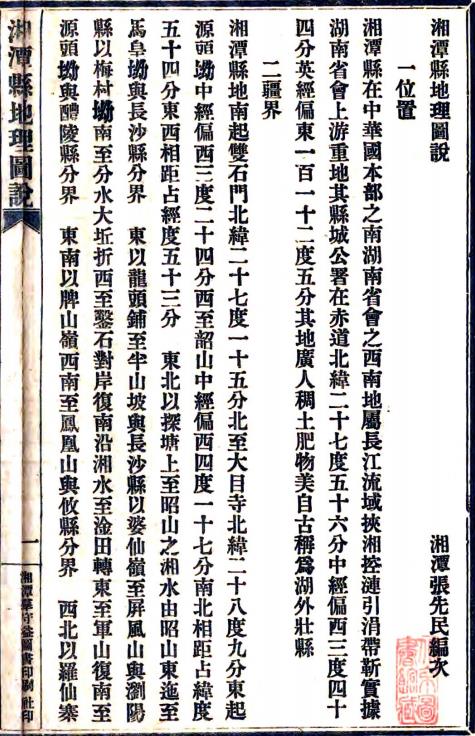 湘潭縣地理圖說
湘潭張先民編次
一位置
湘潭縣在中華國本部之南湖南省會之西南地屬長江流域挾湘控漣引涓帶靳實據
湖南省會上游重地其縣城公署在赤道北緯二十七度五十六分中經偏西三度四十
四分英經偏東一百一十二度五分其地廣人稠土肥物美自古稱爲湖外壯縣
二疆界
湘潭縣地南起雙石門北緯二十七度一十五分北至大目寺北緯二十八度九分東起
源頭坳中經偏西三度二十四分西至韶山中經偏西四度一十七分南北相距占緯度
五十四分東西相距占經度五十三分　東北以探塘上至昭山之湘水由昭山東迤至
馬皇坳與長沙縣分界　東以龍頭鋪至半山坡與長沙縣以婆仙嶺至屏風山與瀏陽
縣以梅村坳南至分水大坵折西至鑿石對岸復南沿湘水至淦田轉東至軍山復南至
源頭坳與醴陵縣分界　東南以牌山嶺西南至鳳凰山與攸縣分界　西北以羅仙寨
湘潭縣地理圖說
一
湘潭守益圖書印刷社印